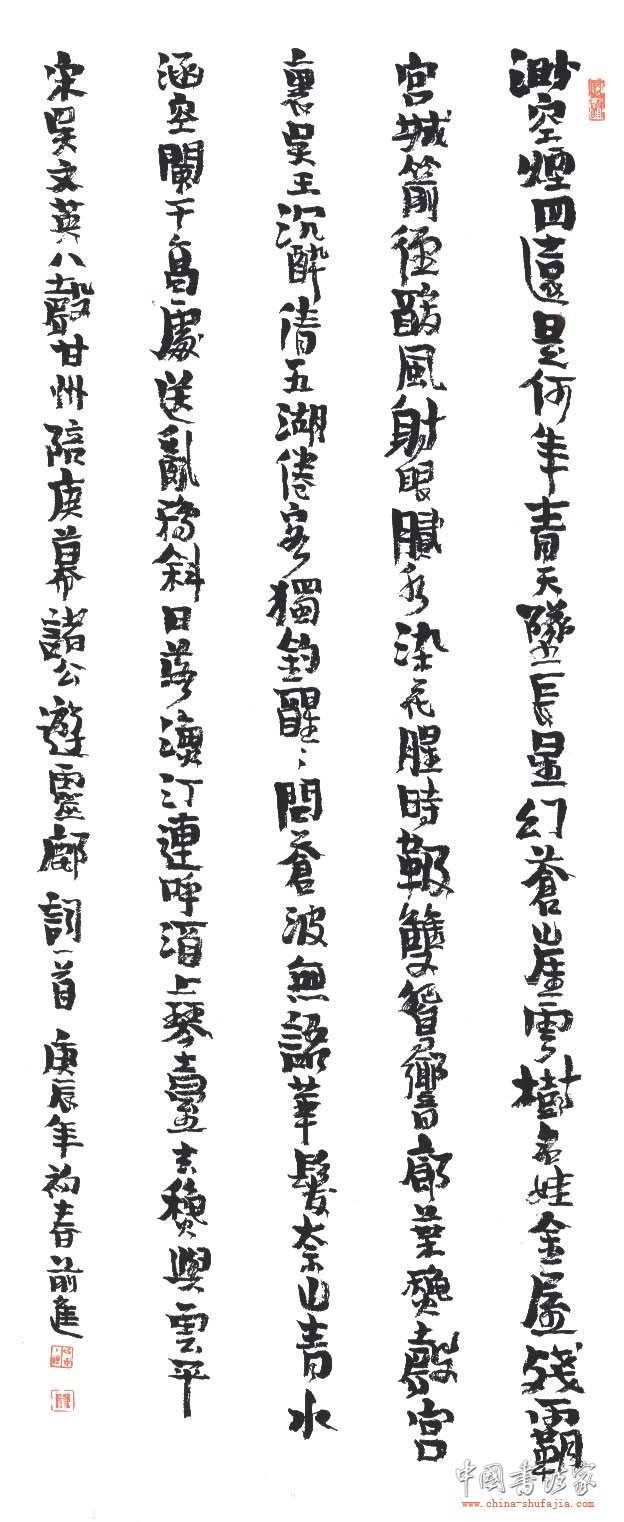 渺空煙四遠是何年青天墜長星幻蒼崖雲樹名娃金屋殘霸
宮城箭徑酸風射眼膩水染花腥時靸雙鴛響廊葉秋聲宮
裏吳王沉醉倩五湖倦客獨釣醒〻問蒼波無語華髮奈山青水
涵空闌干高處送亂鴉斜日落漁汀連呼酒上琴臺去秋與雲平
宋吳文英八聲甘州陪庾幕諸公遊靈廊詞一首 庚辰年初春前進
中国书法家
www.china-shufajia.com